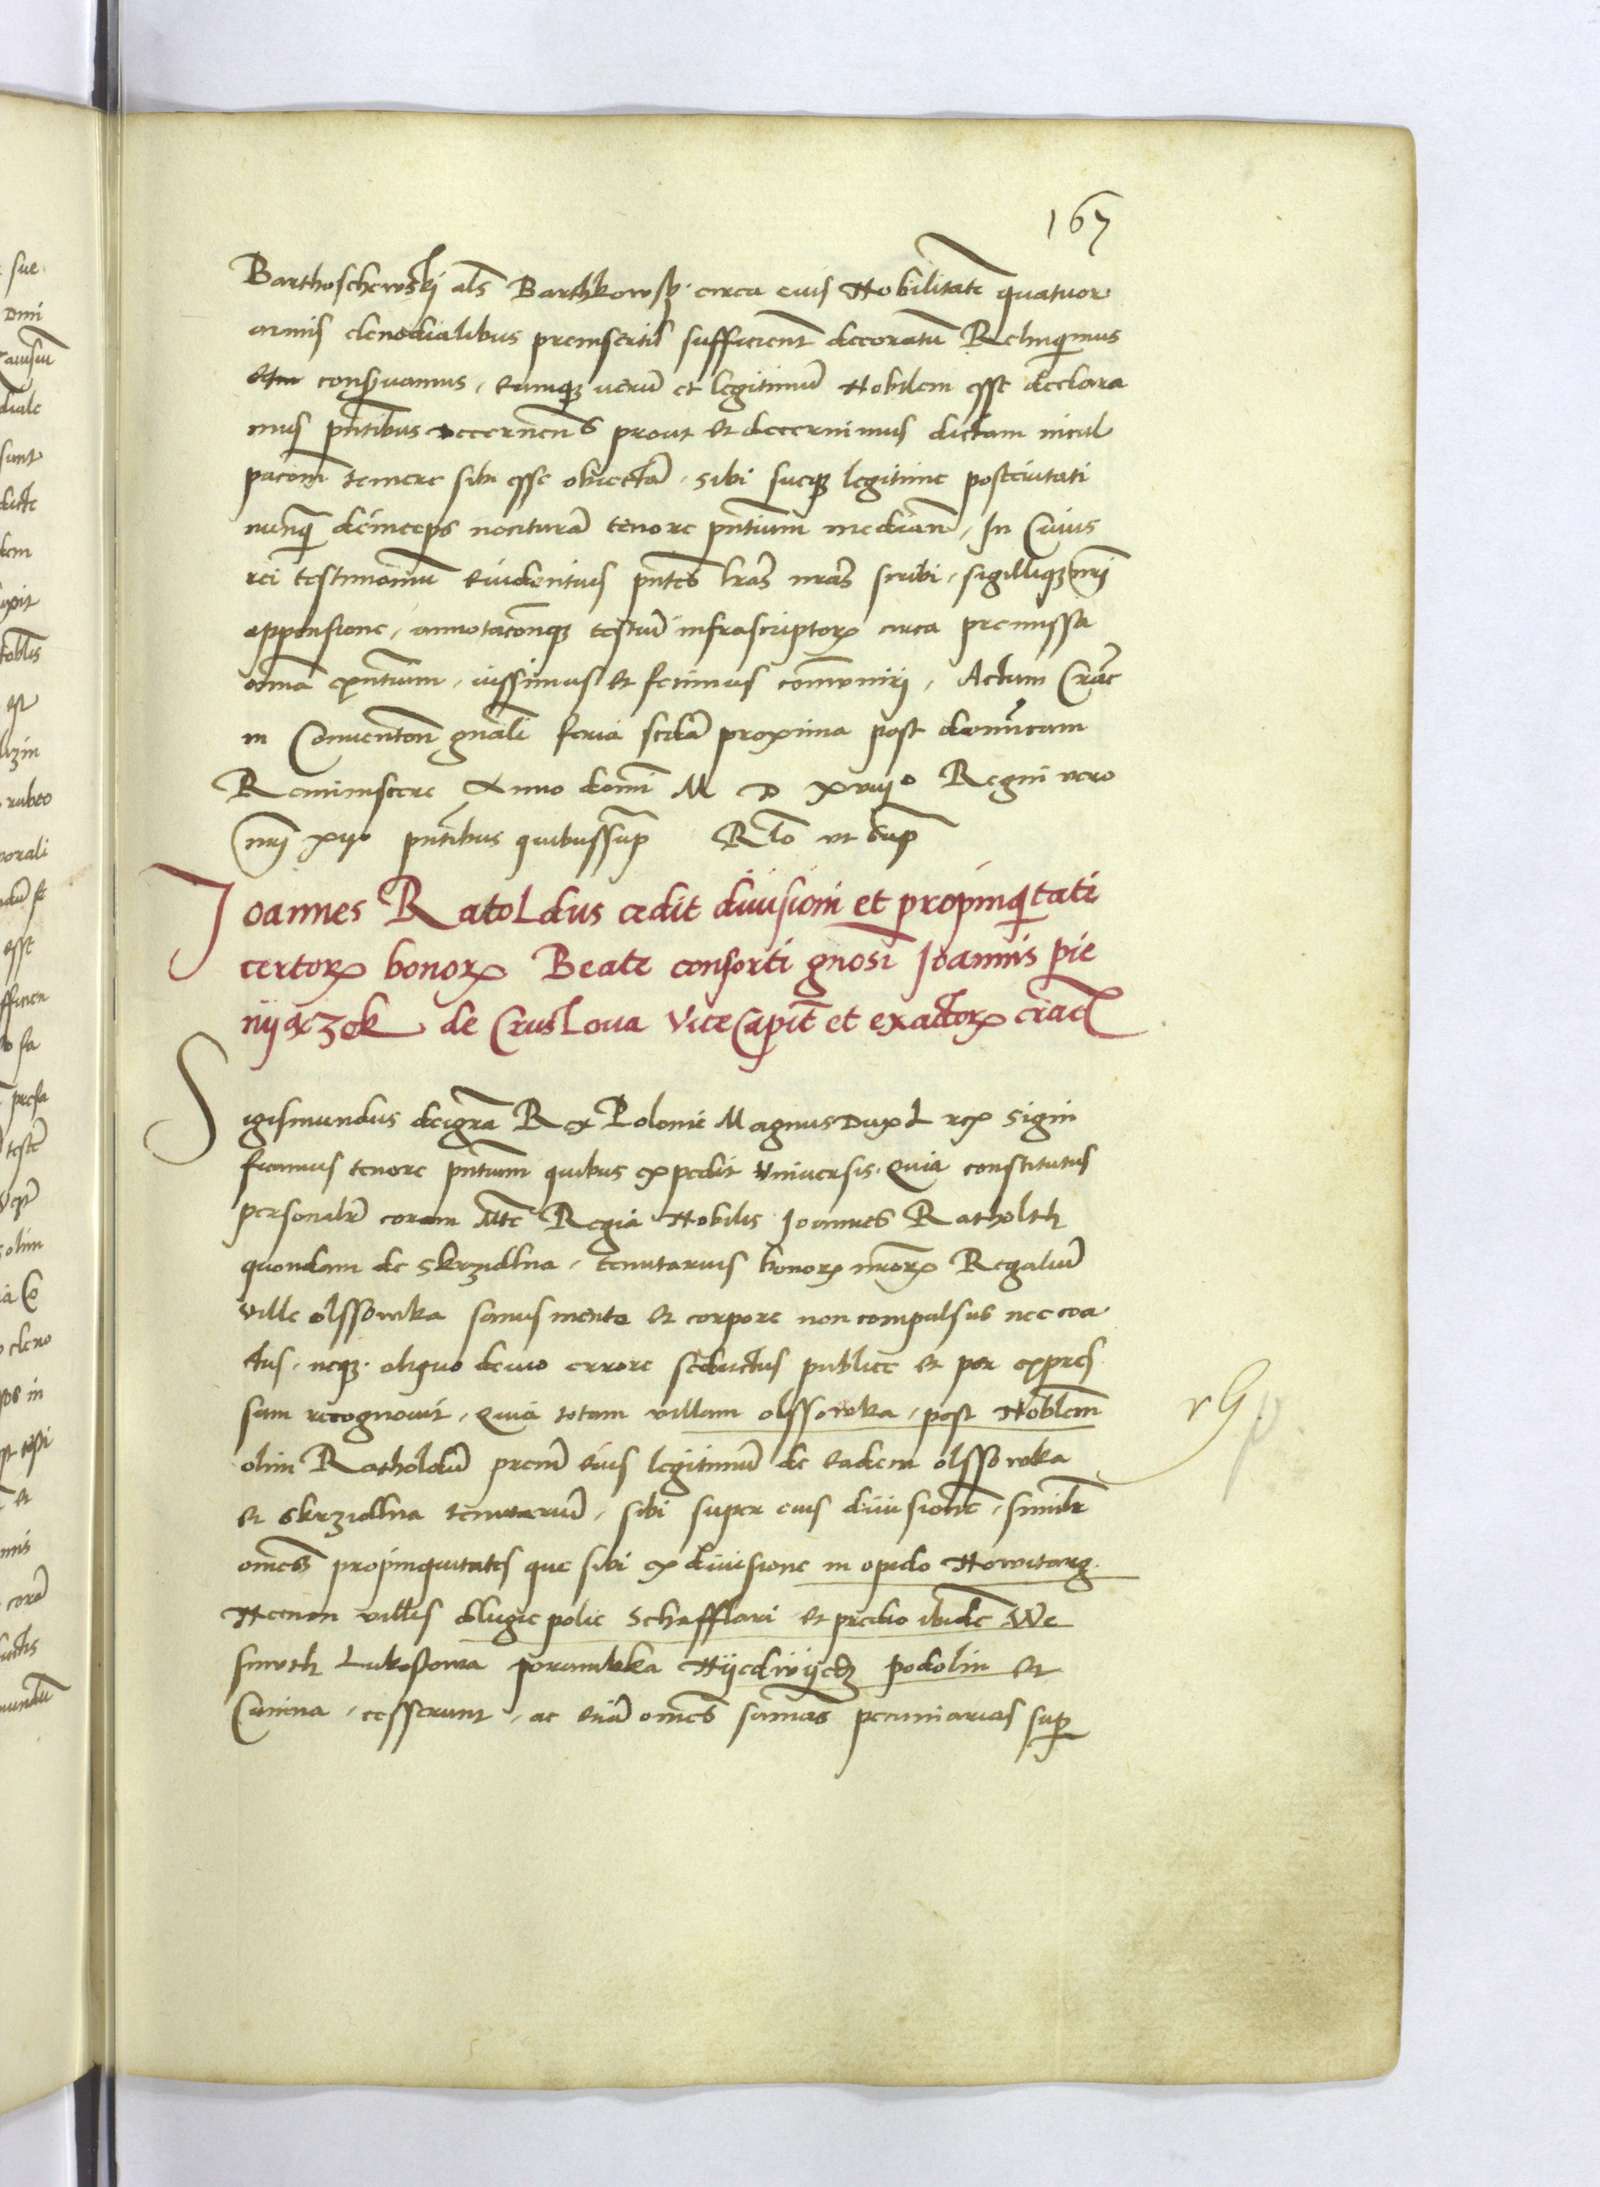 167
Barthoschewskÿ als Barthkowsky circa eius Nobilitatē quatuor
armis clenodialibus preinsertis sufficient decoratū Relinqimus
conservamus, eumqz verū et legitimū Nobilem esse declara
mus pntibus decernens prout et decernimus dictam incul
pacom temere sibi esse obiectā, sibi sueqz legitime posteritati
nunq̃ deinceps nocturā tenore pntium mediān, In Cuius
rei testimoniū evidentius pntes lras nras scribi, sigilliqz nri
appensione, annotacōnqz testiū infrascriptorz circa premissa
omnia exntium, iussimus et fecimus comūniri, Actum Crac
in Conventōn gnāli feria scda proxima post dominicam
Reminiscere Anno domi M D xviijo Regni vero
nri xijo pntibus quibus sup Rlo ut sup
Joannes Ratoldus cedit diuisioni et propinqitati
certorz bonorz Beate consorti gnosi Joannis pie
nijaxzek de Cruslova ViceCapit et exactorz crac
Sigismundus deigra Rex Polonie Magnus Dux L rc Signi
ficamus tenore pntium quibus expedit Vniuersis, Quia constitutus
personalr coram Mte Regia Nobilis Joannes Ratholth
quondam de Skrzidlna, tenutarius bonorz nrorz Regaliū
ville olssowka sanus mente et corpore non compulsus nec coa
ctus, neqz aliquo devio errore seductus publice et per expres
sum recognovit, Quia totam villam olssowka, post Noblem
olim Ratholdū prem eius legitimū de eadem olssowka
et Skrzidlna tenutariū, sibi super eius diuisionē, similr
omnes propinquitates que sibi ex diuisione in opido Nowitarg
Necnon villis dlugie polie Schafflari et predio ibidē We
smuth Lukossowa porambka Nijedwijedz podolin et
Canina, cesserunt, ac etiā omnes sumas pecuniarias sup